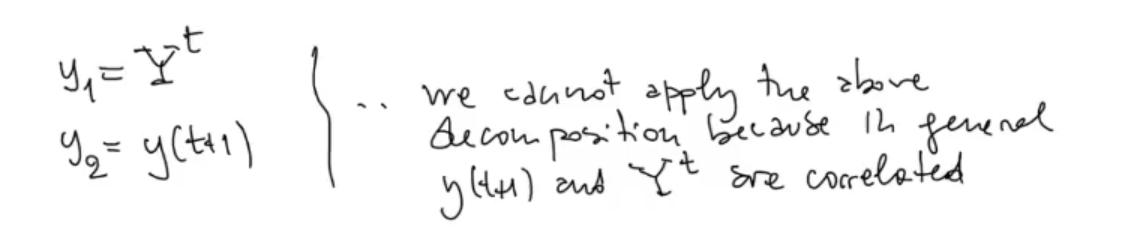 y₁ = Y^t
y₂ = y(t+1)
.. we cannot apply the above
decomposition because in general
y(t+1) and Y^t are correlated